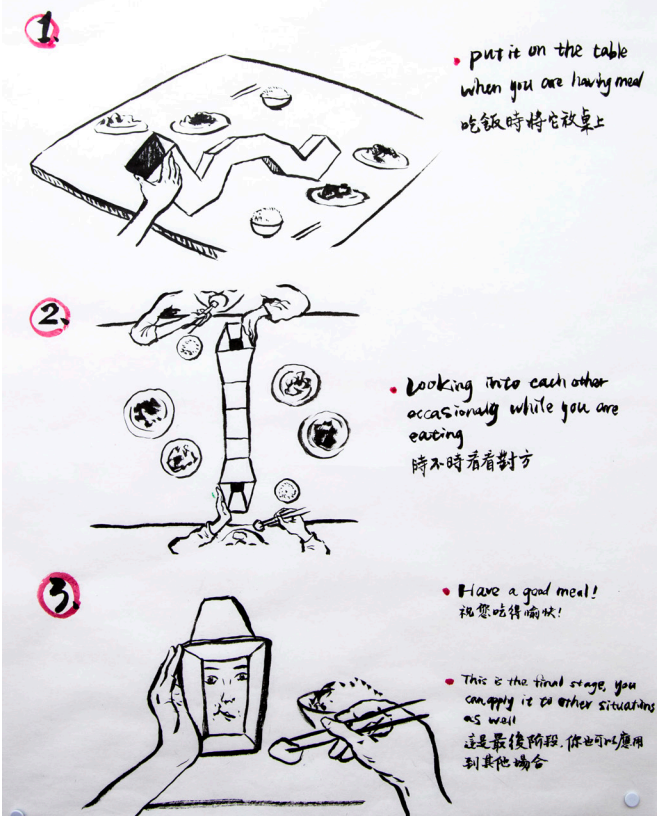 1.
• put it on the table
when you are having meal
吃飯時將它放桌上
2.
• Looking into each other
occasionaly while you are
eating
時不時看看對方
3.
• Have a good meal!
祝您吃得愉快!
• This is the final stage, you
can apply it to other situations
as well
這是最後阶段,你也可以應用
到其他場合